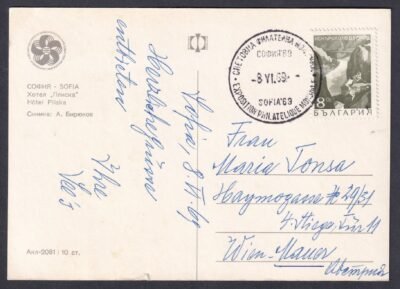 СОФИЯ - SOFIA
Хотел „Плиска"
Hôtel Pliska
Снимка: А. Бирюков
Акл-2081 | 10 ст.
Sofia, 8. VI. 69
Herzlichst
Ihre
СВЕТОВНА ФИЛАТЕЛНА ИЗЛОЖБА
СОФИЯ'69
-8.VI.69.-
SOFIA'69
EXPOSITION PHILATELIQUE MONDIALE
8
БЪЛГАРИЯ
Frau
Maria Tonsa
Haymogasse № 29/31
4. Stiege, Tür 11
Wien-Mauer
Австрия